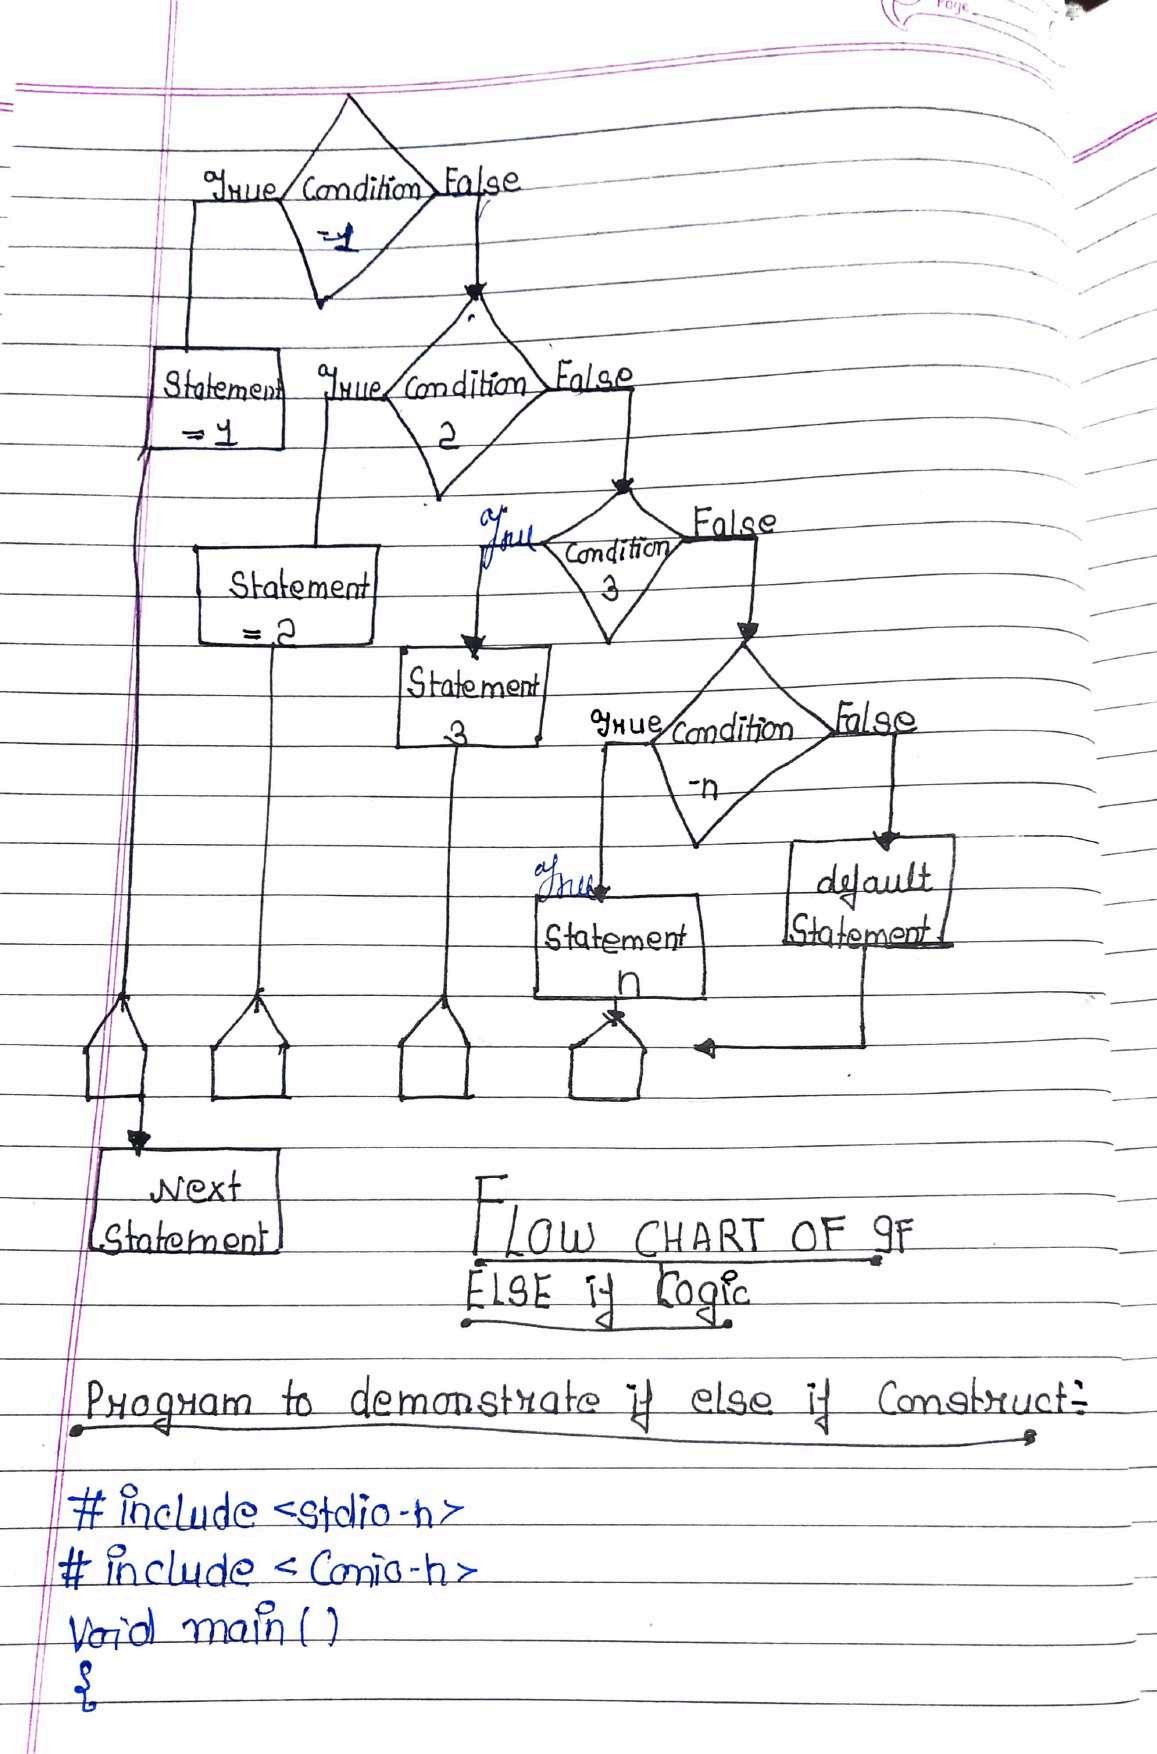 Page
True Condition False
=1
Statement
= 1
True Condition False
2
True Condition False
3
Statement
= 2
Statement
3
True Condition False
-n
True
default
Statement
Statement
n
Next
Statement
FLOW CHART OF IF
ELSE if Logic
Program to demonstrate if else if Construct:-
# include <stdio-h>
# include < Conio-h>
Void main ()
{